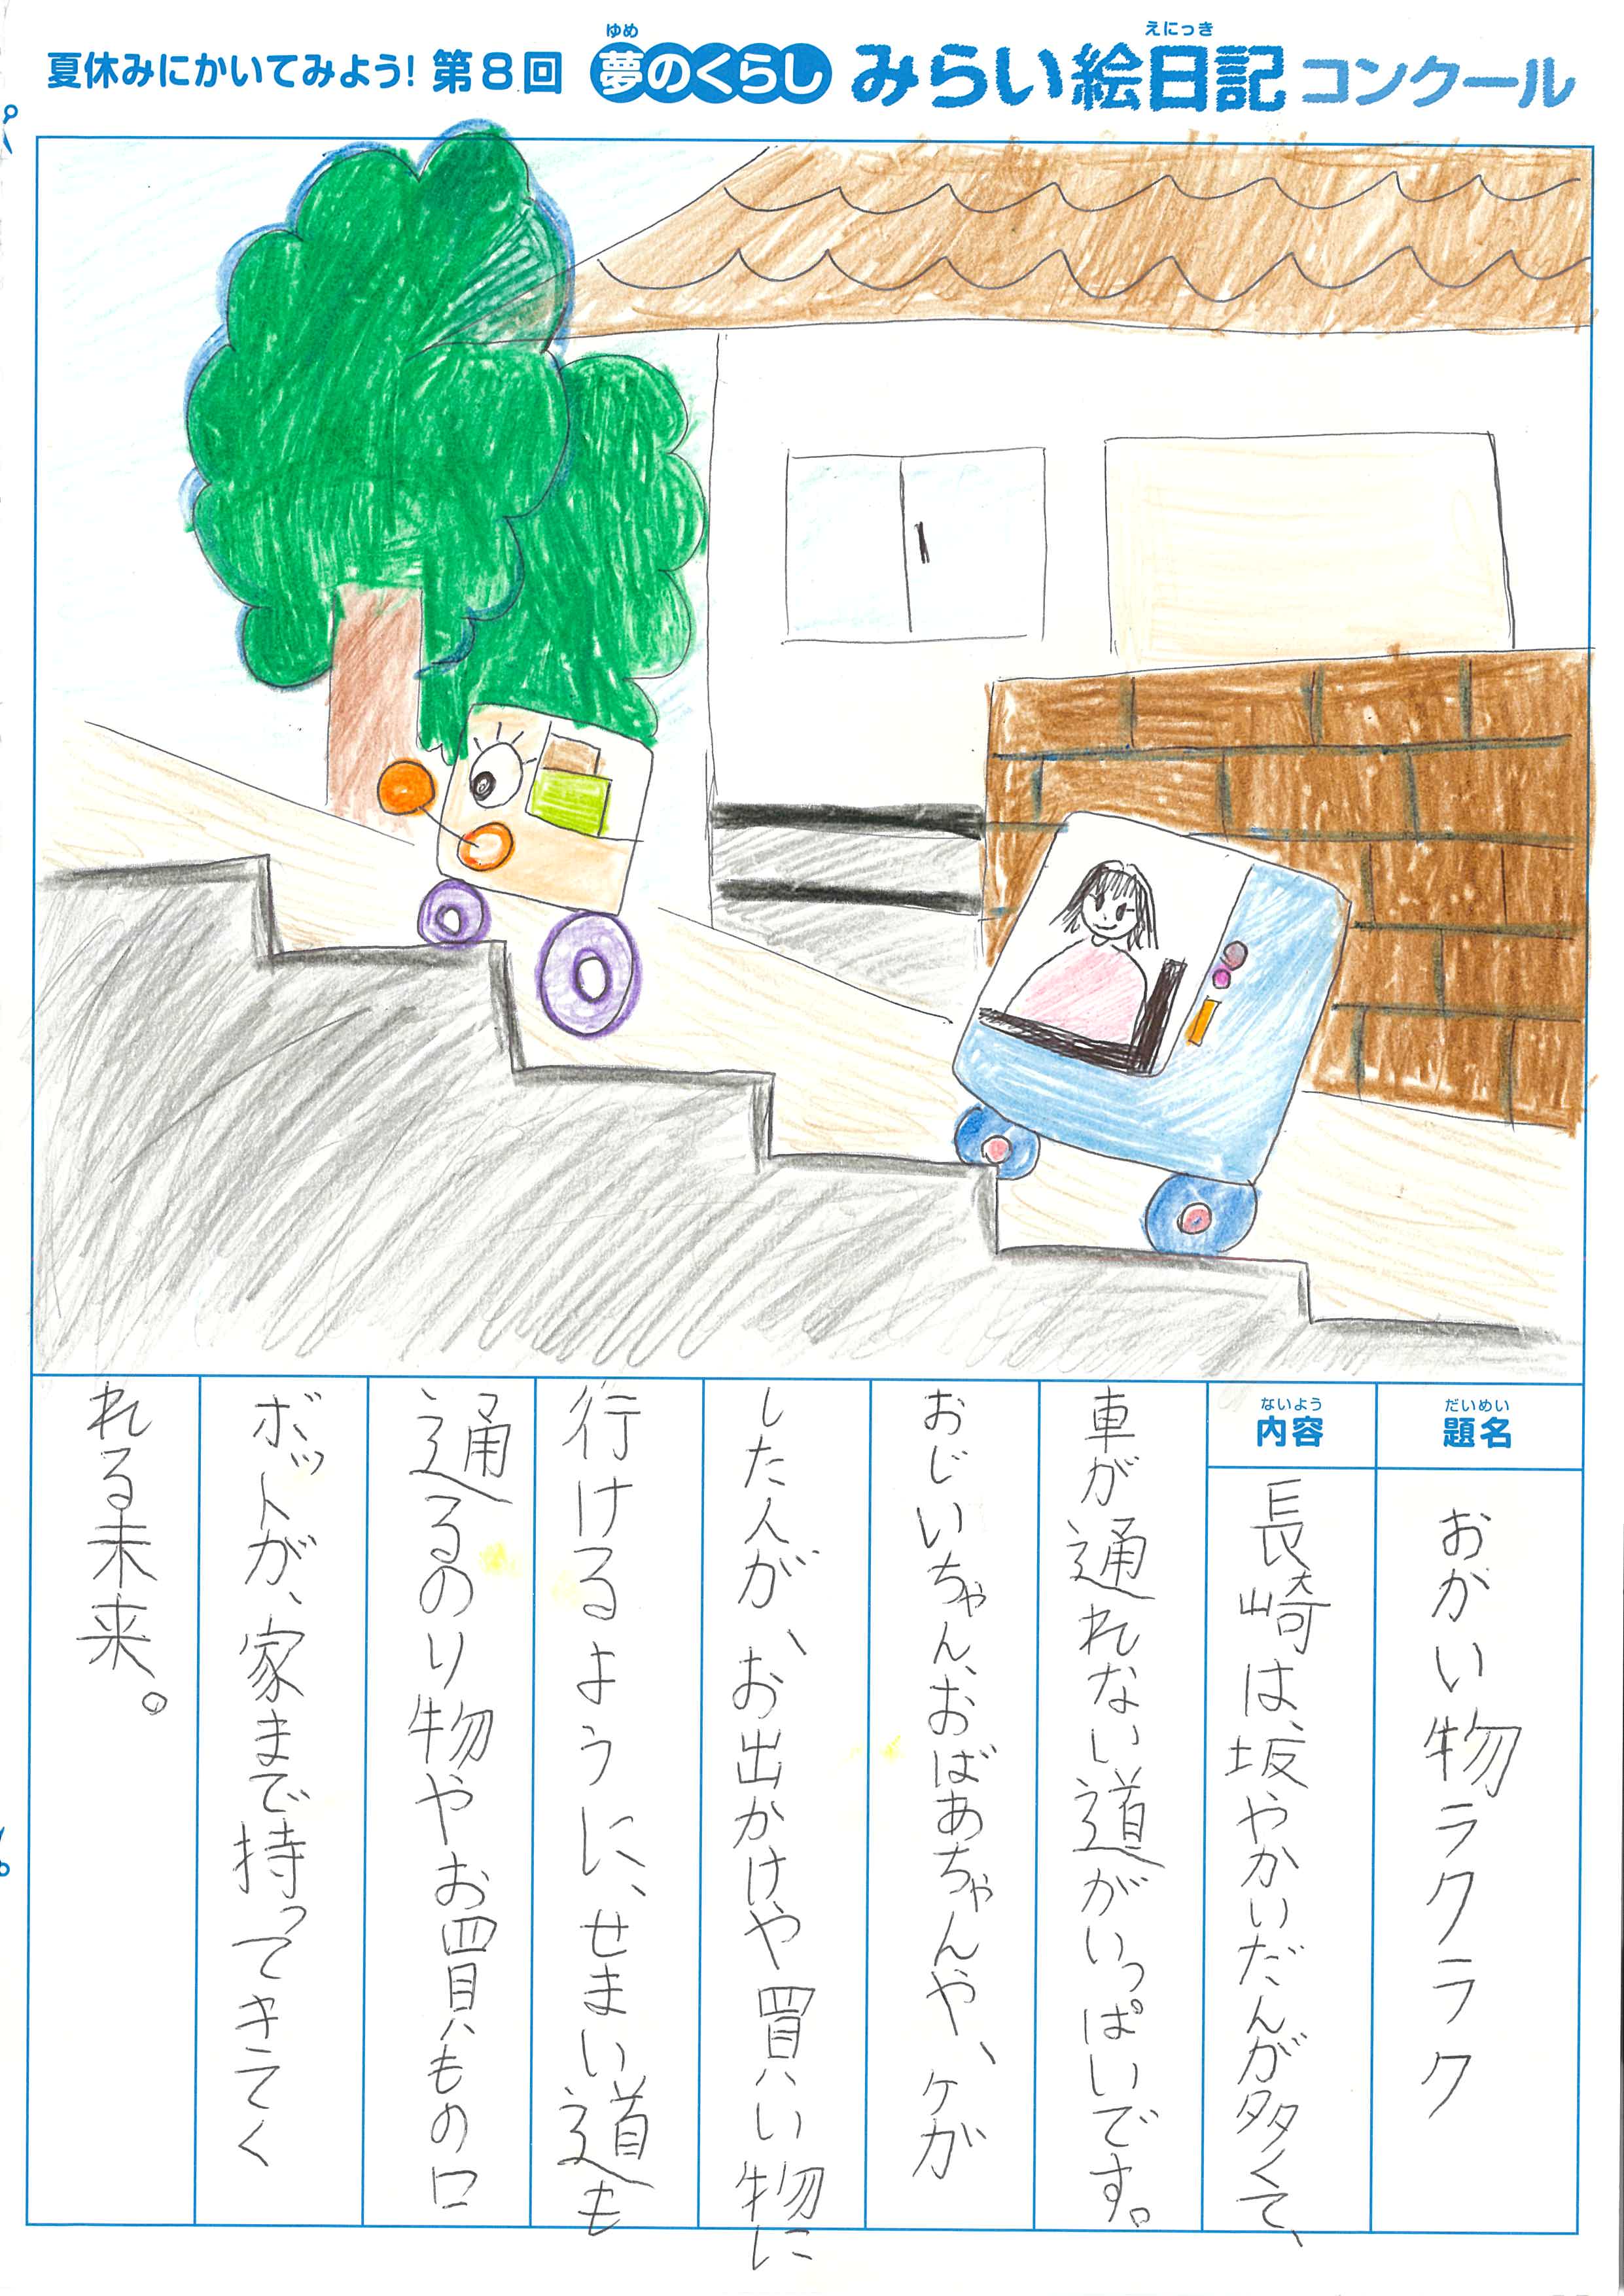 夏休みにかいてみよう！第８回 夢のくらし みらい絵日記コンクール
ゆめ
えにっき
だいめい
題名
おかい物ラクラク
ないよう
内容
長崎は、坂やかいだんが多くて、
車が通れない道がいっぱいです。
おじいちゃん、おばあちゃんや、ケが
した人が、お出かけや買い物に
行けるように、せまい道も
通るのり物やお買いものロ
ボットが、家まで持ってきてく
れる未来。